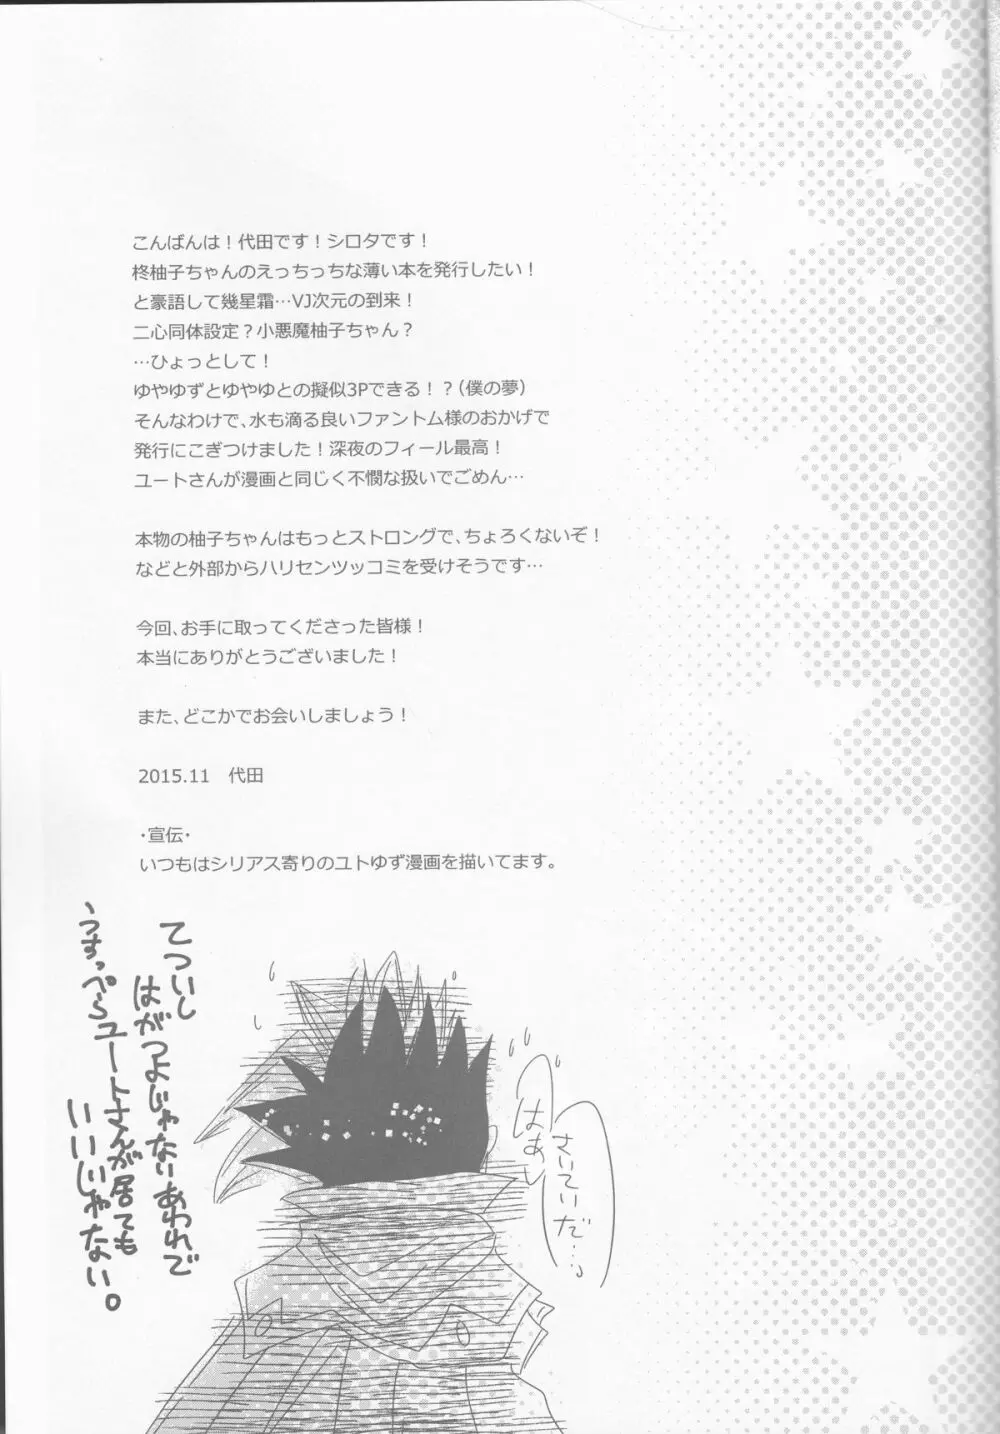 こんばんは！代田です！シロタです！
柊柚子ちゃんのえっちっちな薄い本を発行したい！
と豪語して幾星霜…VJ次元の到来！
二心同体設定？小悪魔柚子ちゃん？
…ひょっとして！
ゆやゆずとゆやゆとの擬似3Pできる！？（僕の夢）
そんなわけで、水も滴る良いファントム様のおかげで
発行にこぎつけました！深夜のフィール最高！
ユートさんが漫画と同じく不憫な扱いでごめん…
本物の柚子ちゃんはもっとストロングで、ちょろくないぞ！
などと外部からハリセンツッコミを受けそうです…
今回、お手に取ってくださった皆様！
本当にありがとうございました！
また、どこかでお会いしましょう！
2015.11　代田
・宣伝・
いつもはシリアス寄りのユトゆず漫画を描いてます。
てついし
はがつよじゃないあわれで
うすっぺらユートさんが居ても
いいじゃない。
はぁ
さいていだ…